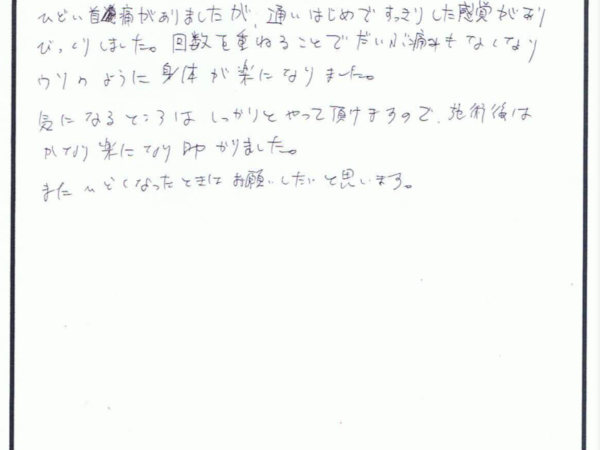 ひどい首痛がありましたが、通いはじめですっきりした感覚があり
びっくりしました。回数を重ねることでだいぶ痛みもなくなり
ウソのように身体が楽になりました。
気になるところはしっかりとやって頂けますので、施術後は
かなり楽になり助かりました。
またひどくなったときはお願いしたいと思います。